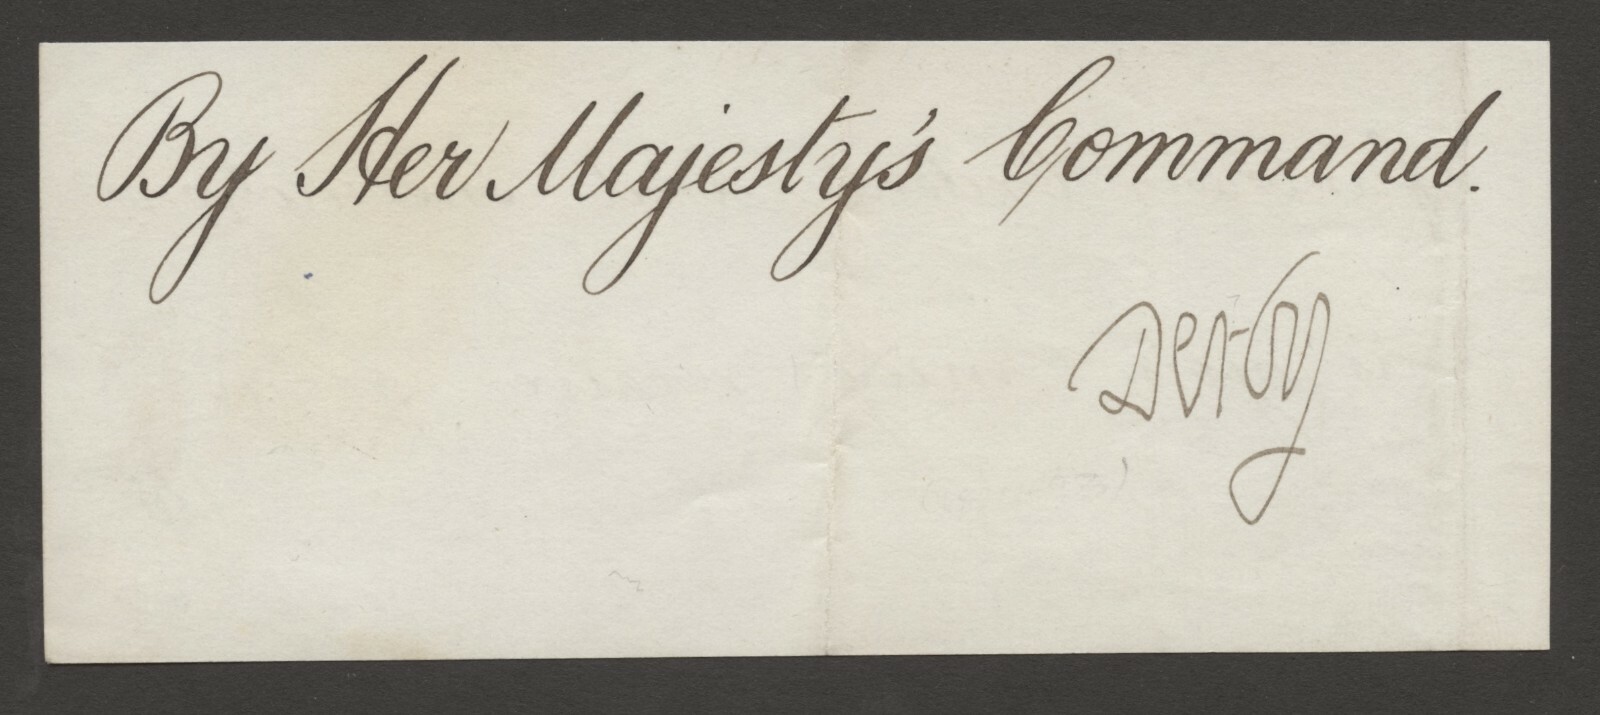 By Her Majesty's Command.
Derby